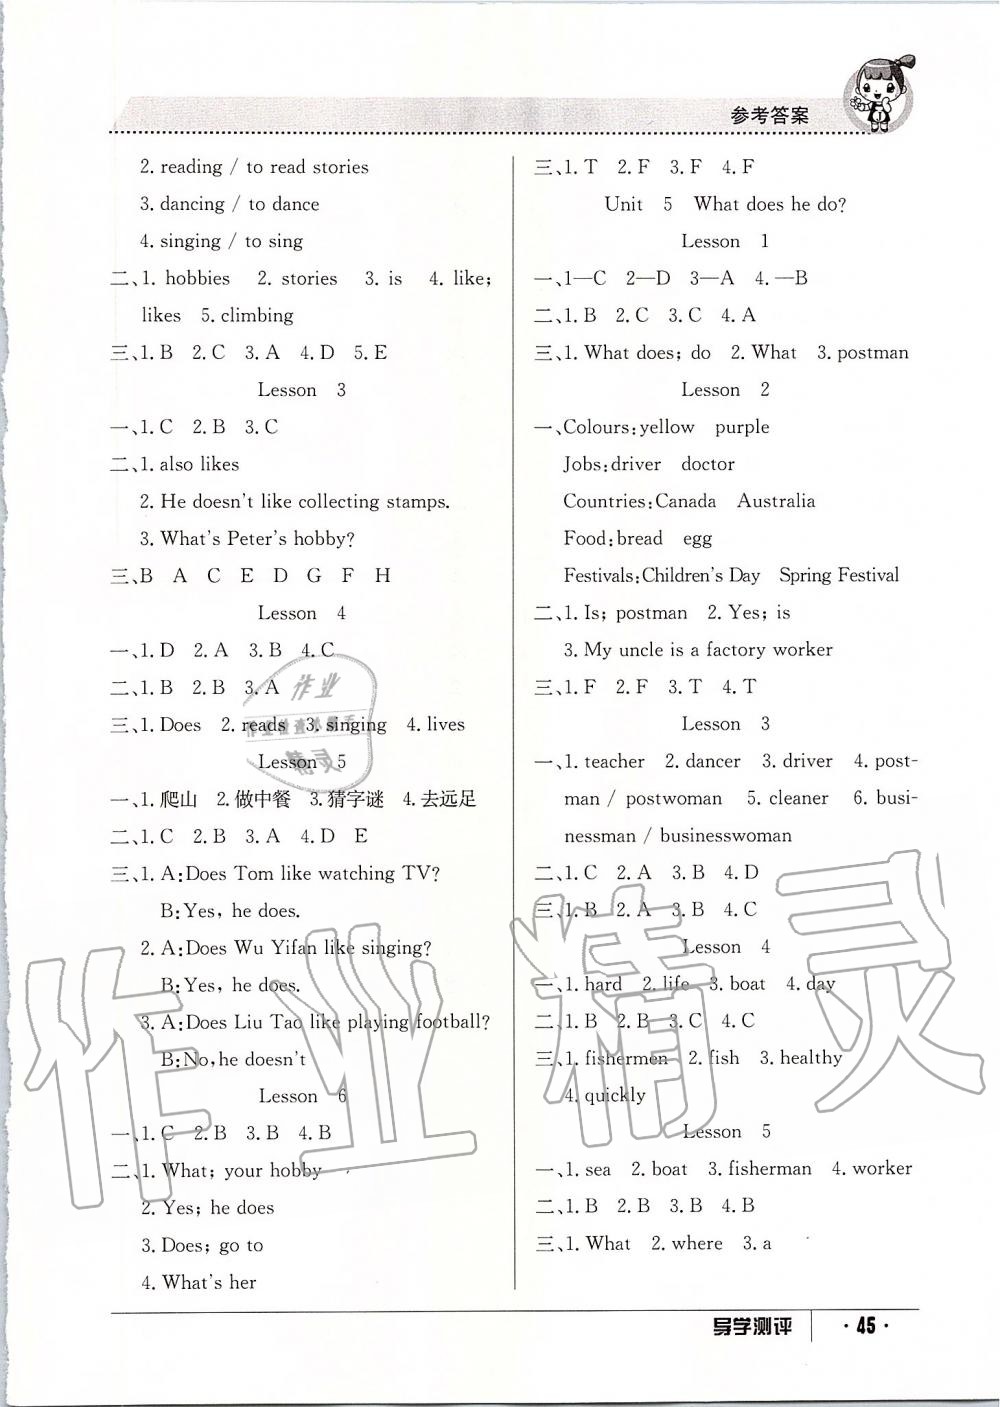 参考答案
2. reading / to read stories
3. dancing / to dance
4. singing / to sing
二、1. hobbies 2. stories 3. is 4. like;
likes 5. climbing
三、1. B 2. C 3. A 4. D 5. E
Lesson 3
一、1. C 2. B 3. C
二、1. also likes
2. He doesn't like collecting stamps.
3. What's Peter's hobby?
三、B A C E D G F H
Lesson 4
一、1. D 2. A 3. B 4. C
二、1. B 2. B 3. A
三、1. Does 2. reads 3. singing 4. lives
Lesson 5
一、1. 爬山 2. 做中餐 3. 猜字谜 4. 去远足
二、1. C 2. B 3. A 4. D E
三、1. A:Does Tom like watching TV?
B:Yes, he does.
2. A:Does Wu Yifan like singing?
B:Yes, he does.
3. A:Does Liu Tao like playing football?
B:No, he doesn't
Lesson 6
一、1. C 2. B 3. B 4. B
二、1. What; your hobby
2. Yes; he does
3. Does; go to
4. What's her
三、1. T 2. F 3. F 4. F
Unit 5 What does he do?
Lesson 1
一、1—C 2—D 3—A 4. —B
二、1. B 2. C 3. C 4. A
三、1. What does; do 2. What 3. postman
Lesson 2
一、Colours:yellow purple
Jobs:driver doctor
Countries:Canada Australia
Food:bread egg
Festivals:Children's Day Spring Festival
二、1. Is; postman 2. Yes; is
3. My uncle is a factory worker
三、1. F 2. F 3. T 4. T
Lesson 3
一、1. teacher 2. dancer 3. driver 4. post-
man / postwoman 5. cleaner 6. busi-
nessman / businesswoman
二、1. C 2. A 3. B 4. D
三、1. B 2. A 3. B 4. C
Lesson 4
一、1. hard 2. life 3. boat 4. day
二、1. B 2. B 3. C 4. C
三、1. fishermen 2. fish 3. healthy
4. quickly
Lesson 5
一、1. sea 2. boat 3. fisherman 4. worker
二、1. B 2. B 3. B 4. B
三、1. What 2. where 3. a
导学测评 · 45 ·
作业精灵
作业
精灵